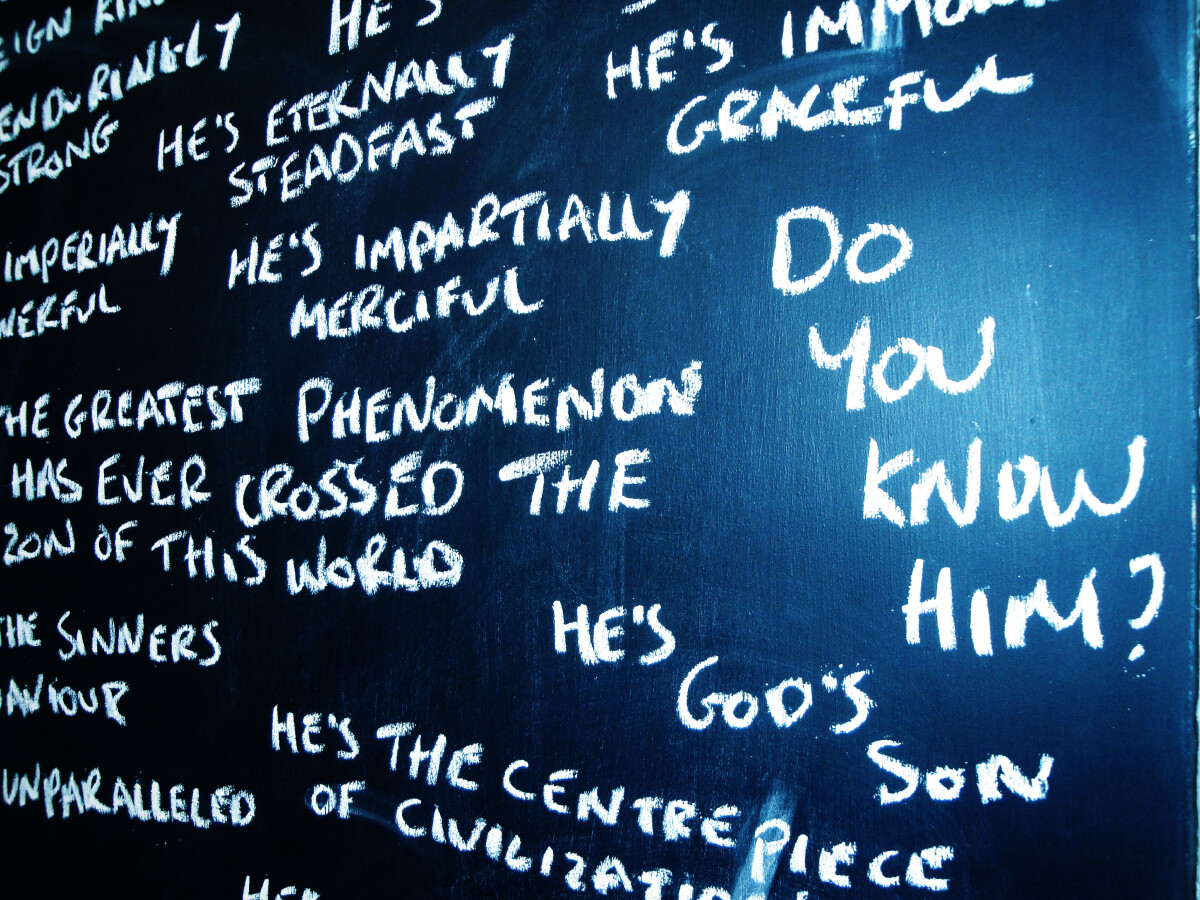 EIGN KIN
ENDURINGLY
STRONG
HE'S
HE'S ETERNALLY
STEADFAST
HE'S IMMOR
GRACEFUL
IMPERIALLY
WERFUL
HE'S IMPARTIALLY
MERCIFUL
DO
YOU
KNOW
HIM?
HE GREATEST PHENOMENON
HAS EVER CROSSED THE
ZON OF THIS WORLD
HE'S
GOD'S
SON
THE SINNERS
AVIOUR
HE'S THE CENTREPIECE
OF CIVILIZATIO
UNPARALLELED
HE'S